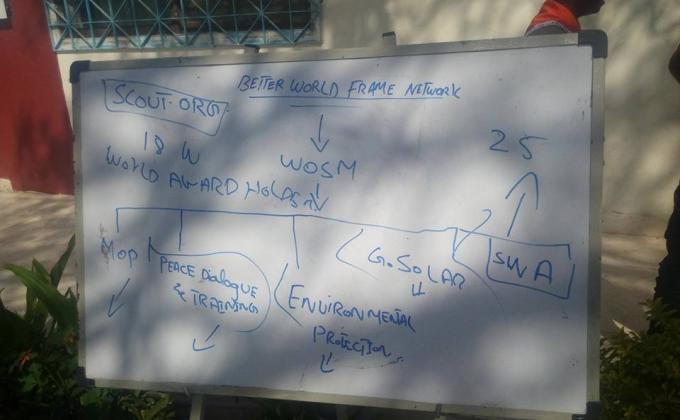 BETTER WORLD FRAME NETWORK
SCOUT.ORG
WOSM
WORLD AWARD HOLDER
25
MOP
PEACE DIALOGUE
& TRAINING
ENVIRONMENTAL
PROTECTION
GO SOLAR
SWA